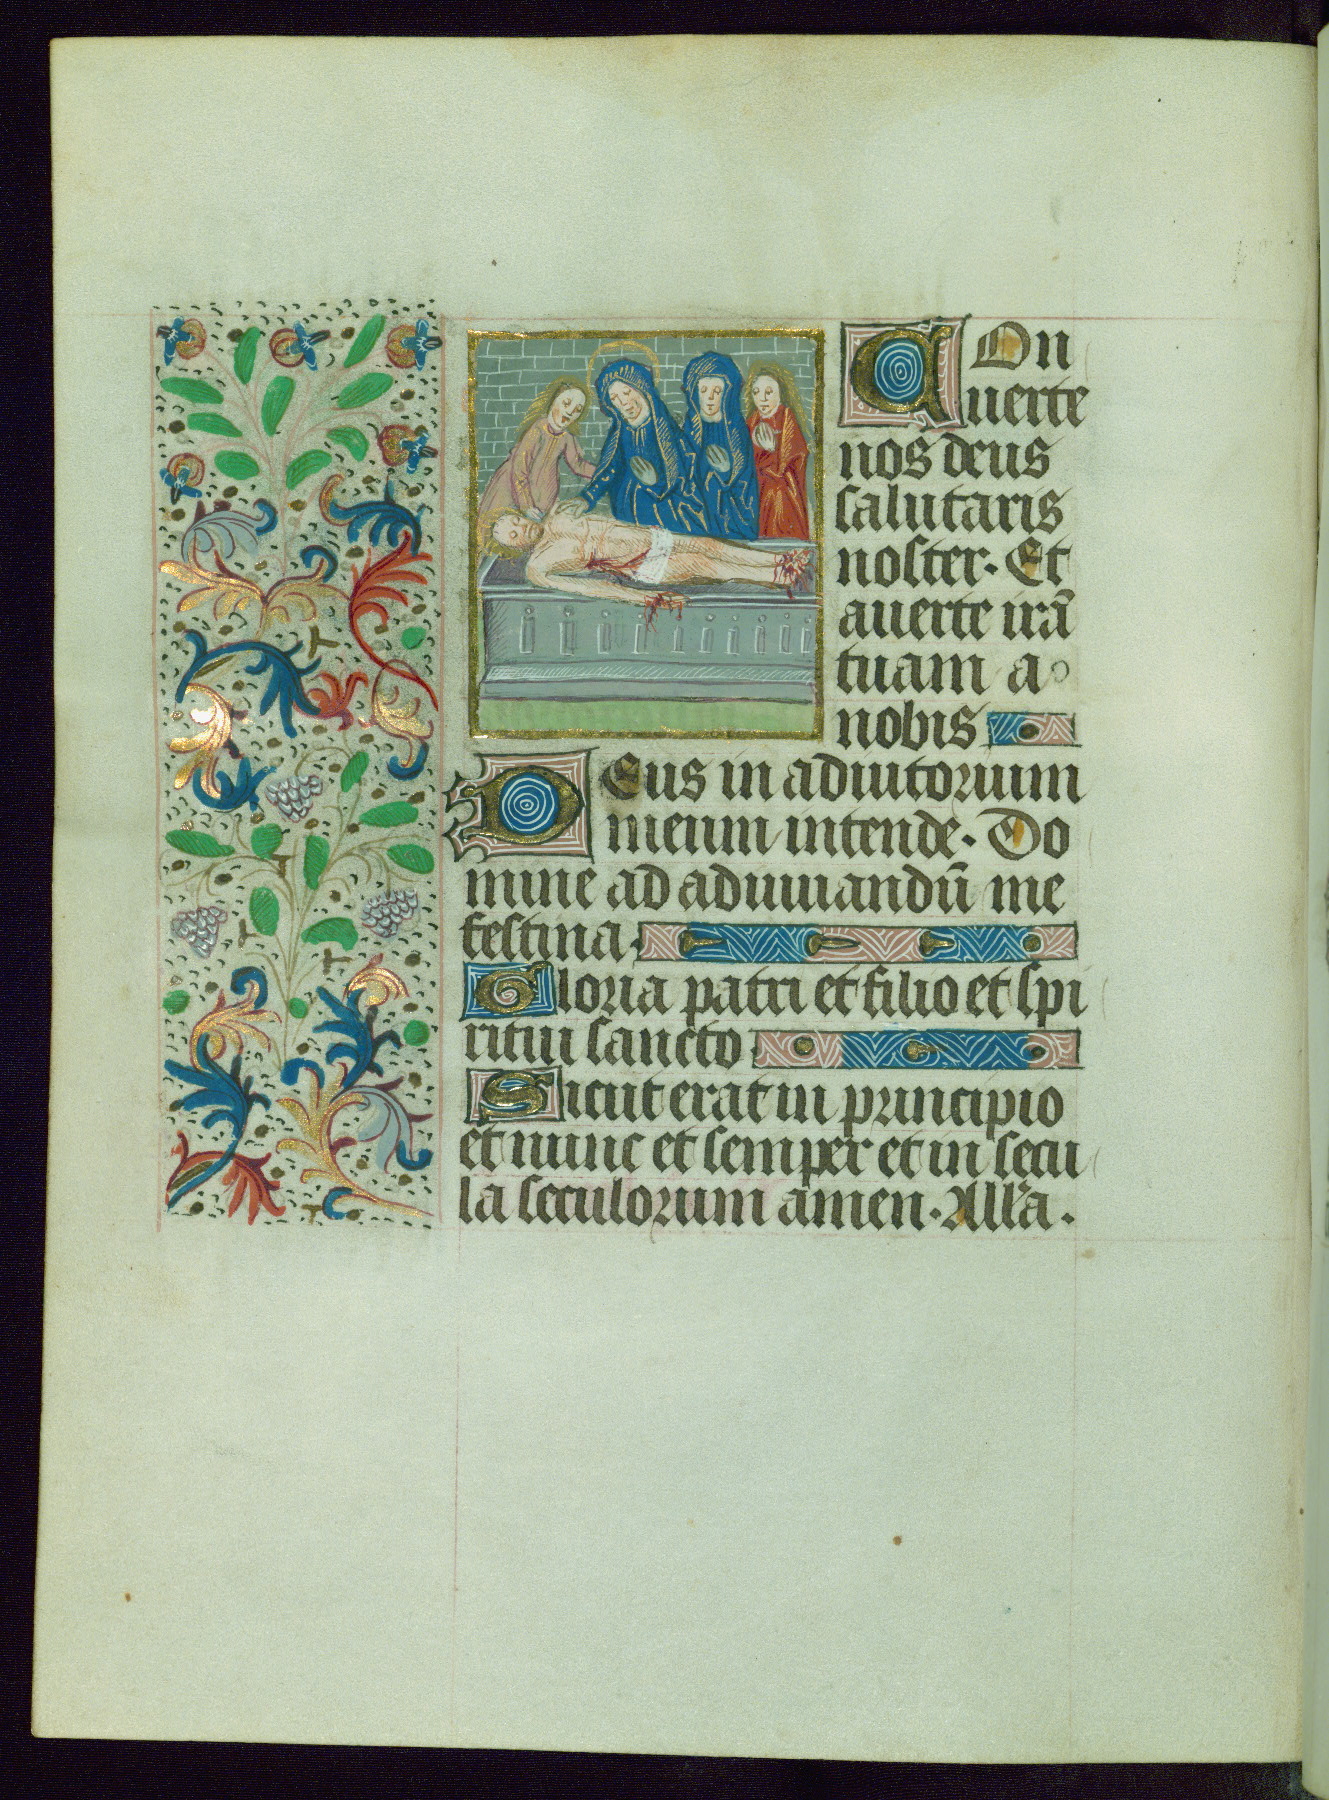 COn
uerte
nos deus
salutaris
noster. Et
auerte irā
tuam a
nobis
DEus in adiutorium
meum intende. Do
mine ad adiuuandū me
festina.
Gloria patri et filio et spi
ritui sancto
Sicut erat in principio
et nunc et semper et in secu
la seculorum amen. All'a.